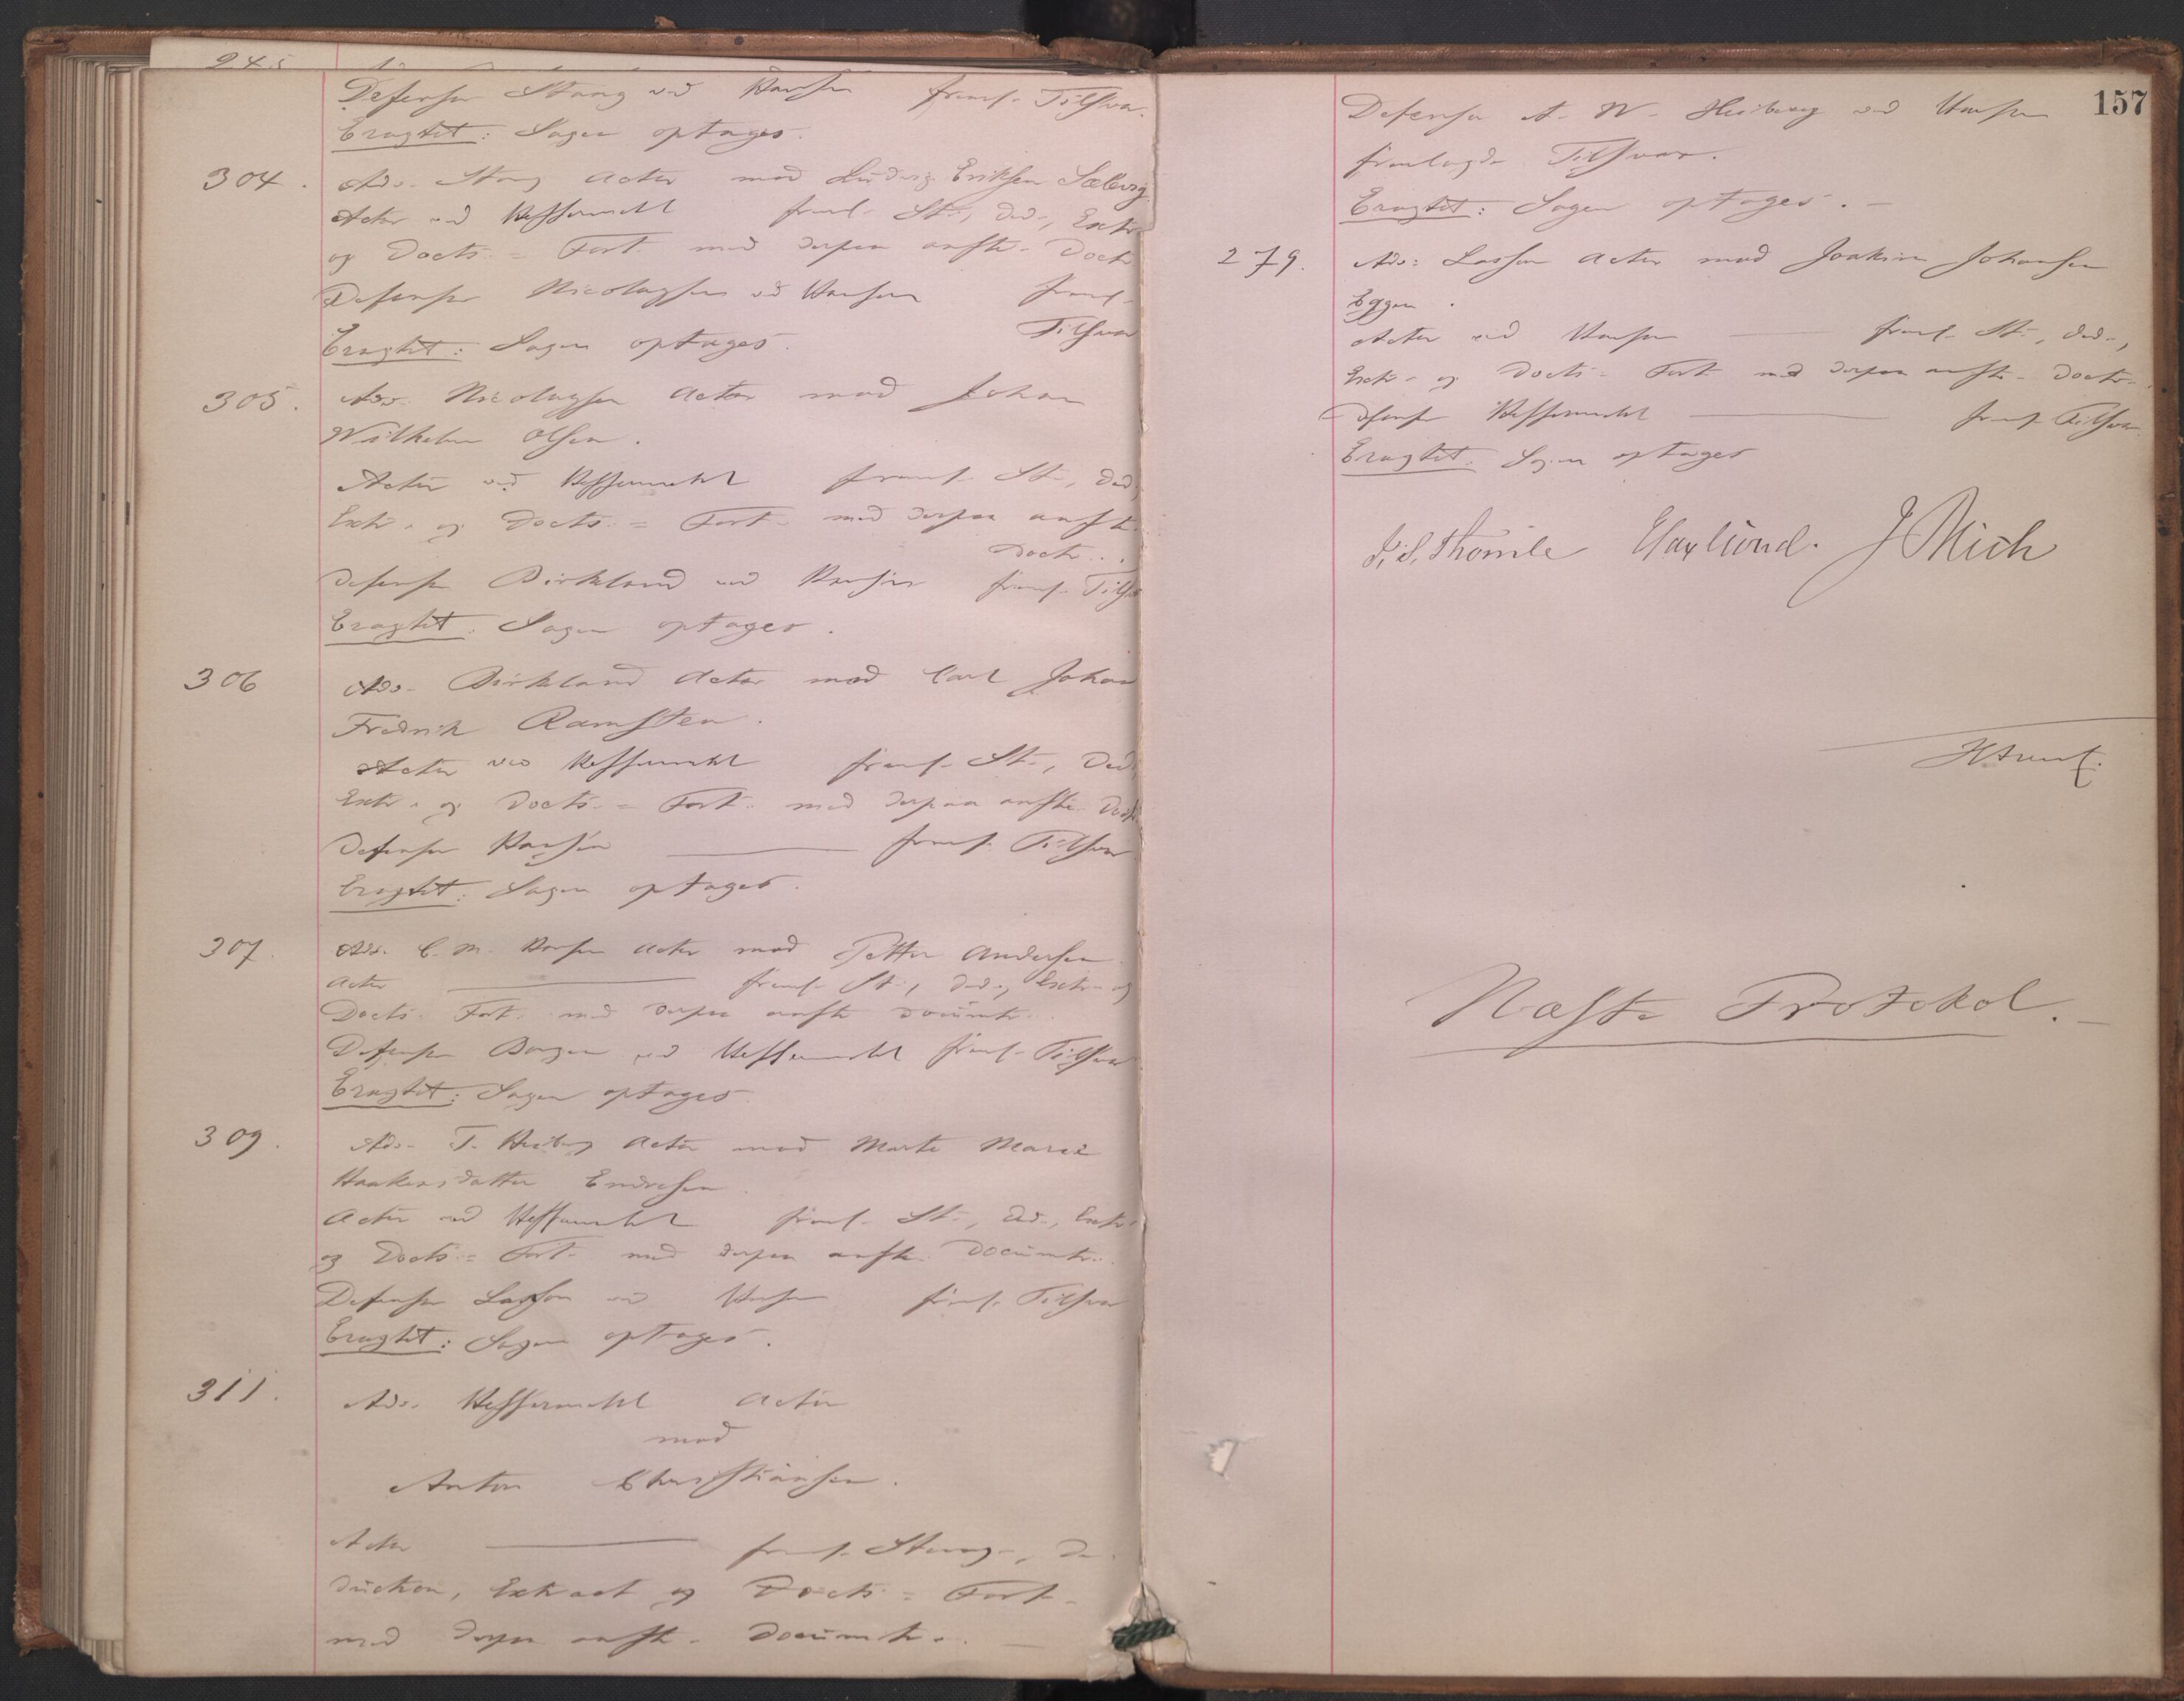 245
Defensor Stang ved Hansen freml. Tilsvar.
Eragtet: Sagen optages.
304. Adv. Stang Actor mod Ludvig Eriksen Sælevig
Actor ved Heffermehl freml. St., Ded., Extr.
og Docts.= Fort. med derpaa anfte. Doctr.
Defensor Nicolaysen ved Hansen freml.
Tilsvar
Eragtet: Sagen optages.
305. Adv. Nicolaysen Actor mod Johan
Wilhelm Olsen.
Actor ved Heffermehl freml. St., Ded.,
Extr. og Docts.= Fort. med derpaa anfte.
Doctr.
Defensor Birkland ved Hansen freml. Tilsv
Eragtet: Sagen optages.
306 Adv. Birkland Actor mod Carl Johan
Fredrik Ramsten.
Actor ved Heffermehl freml. St., Ded.
Extr. og Docts.= Fort. med derpaa anfte. Doctr.
Defensor Hansen freml. Tilsvar
Eragtet: Sagen optages.
307. Adv. C. M. Hansen Actor mod Petter Andersen.
Actor freml. St., Ded., Extr. og
Docts. Fort. med derpaa anfte Documtr.
Defensor ved Heffermehl freml. Tilsvar
Eragtet: Sagen optages.
309. Adv. T. Heiberg Actor mod Marte Marie
Haakensdatter Endresen.
Actor ved Heffermehl freml. St., Ded., Extr.
og Docts.= Fort. med derpaa anfte. Documtr.
Defensor Lasson ved Hansen freml. Tilsvar
Eragtet: Sagen optages.
311. Adv. Heffermehl Actor
mod
Anton Christiansen.
Actor freml. Stevng., De-
duction, Extract og Docts.= Fort.
med derpaa anfte. Documtr.
157
Defensor A. W. Heiberg ved Hansen
fremlagde Tilsvar.
Eragtet: Sagen optages.
279. Adv: Lasson Actor mod Joakim Johansen
Eggen.
Actor ved Hansen freml. St., Ded.,
Extr. og Docts. Fort. med derpaa anfte. Doctr.
Defensor Heffermehl freml. Tilsvar
Eragtet: Sagen optages
Thomle J Mich
Næste Protokol.